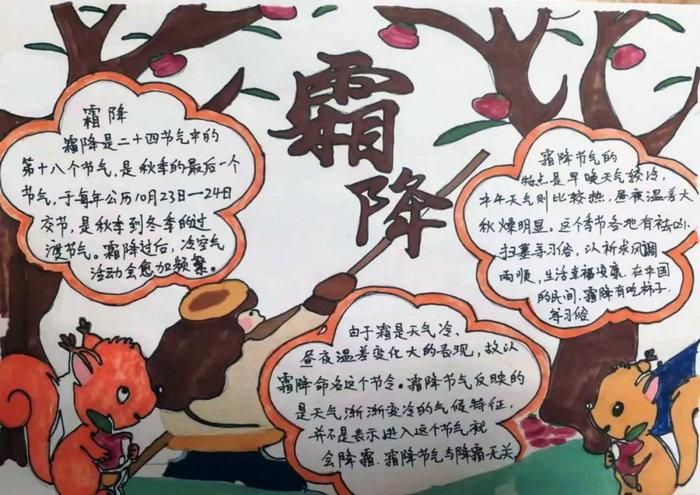 霜降
霜降
霜降是二十四节气中的
第十八个节气,是秋季的最后一个
节气,于每年公历10月23日—24日
交节,是秋季到冬季的过
渡节气。霜降过后,冷空气
活动会愈加频繁。
霜降节气的
特点是早晚天气较冷,
中午天气则比较热,昼夜温差大
秋燥明显。这个季节各地有祛凶、
扫墓等习俗,以祈求风调
雨顺,生活幸福安康。在中国
的民间,霜降有吃柿子
等习俗
由于霜是天气冷、
昼夜温差变化大的表现,故以
霜降命名这个节令。霜降节气反映的
是天气渐渐变冷的气候特征,
并不是表示进入这个节气就
会降霜.霜降节气与降霜无关